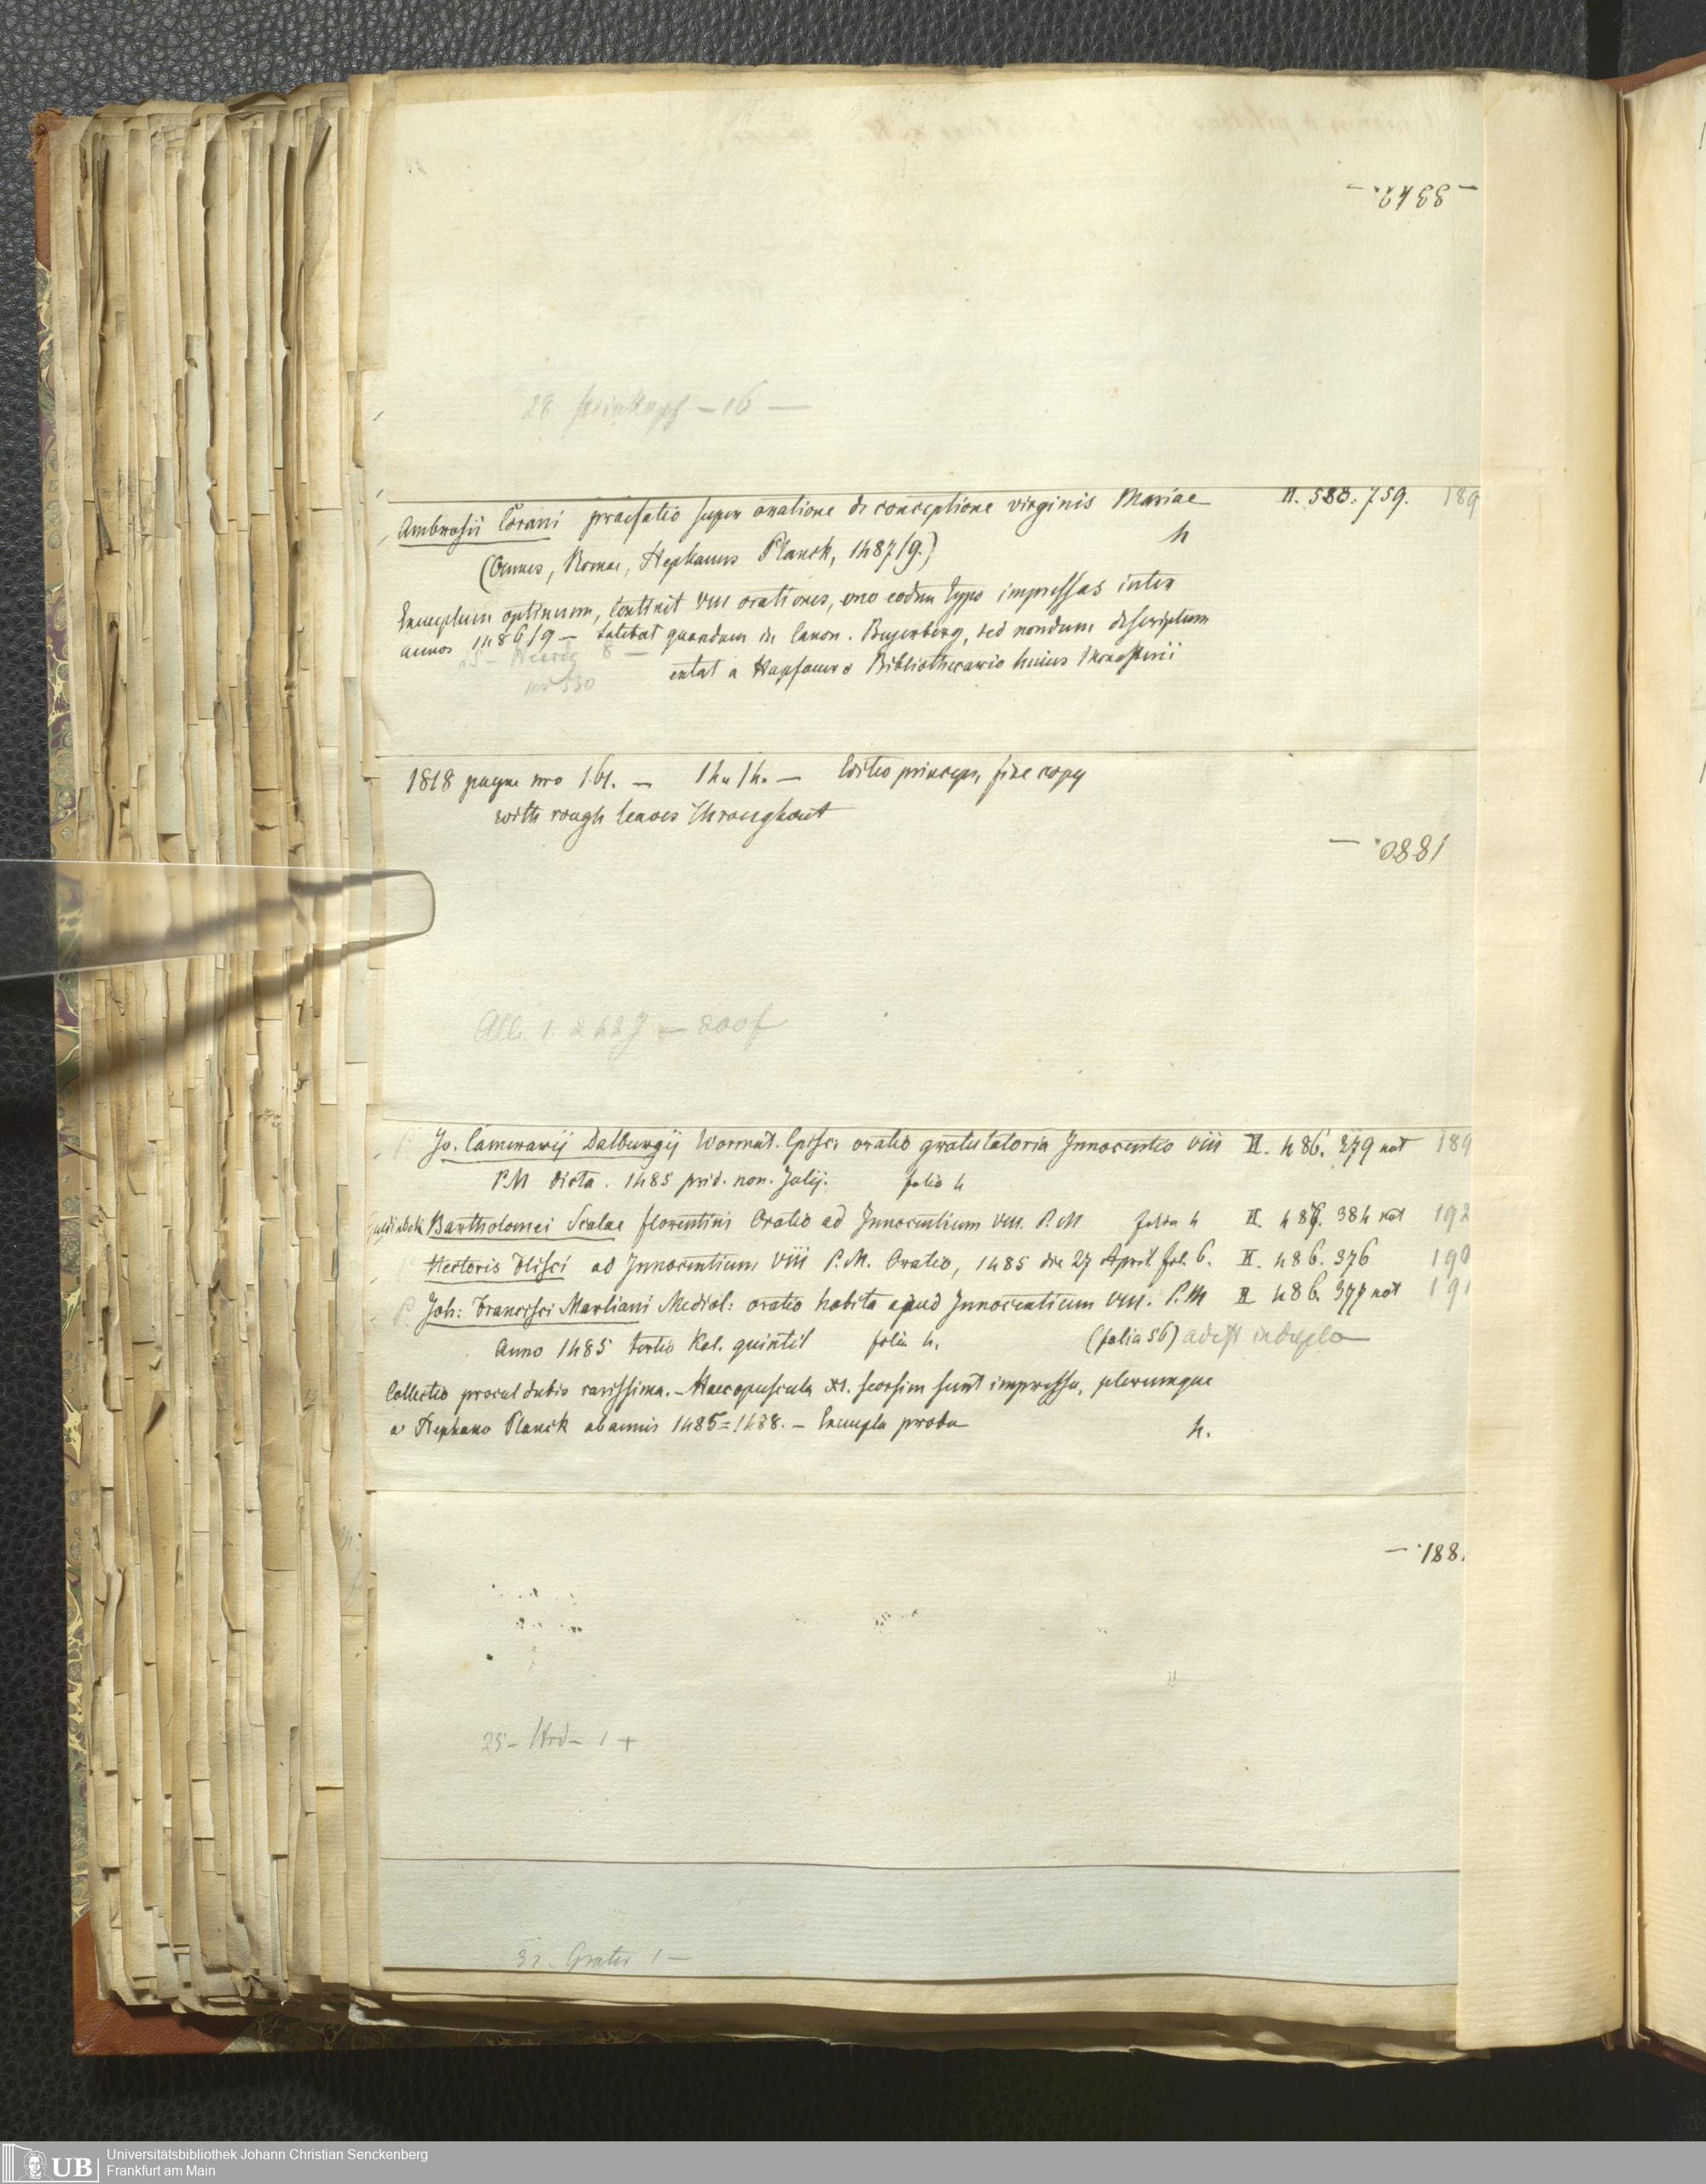 - 3342. -
28 - 16 -
Ambrosii Corani praefatio super oratione de conceptione virginis Mariae II. 580. 759. 189
(Omnes, Romae, Stephanus Planck, 1487/9.) 4
Exemplum optimum, continet VIII orationes, uno eodem typo impressas inter
annos 1486/9 - latebat quondam in Canon. Beyerberg, sed nondum descriptum
8 - extat a Bibliothecario huius Monasterii
nro 530
1818 payne nro 161. - 14. 14. - Editio princeps, fine copy
with rough leaves throughout
1880. -
All. 1. 2427 - 800f
Jo. Camerarij Dalburgij Wormat. Episc. oratio gratulatoria Innocentio VIII II. 486. 379 not 189
P.M dicta. 1485 prid. non. Julij. folio 4
Bartholomei Scalae florentini Oratio ad Innocentium VIII. P.M folia 4 II. 487. 384 not 192
Hectoris Flisci ad Innocentium VIII P.M. Oratio, 1485 die 27 April fol. 6. II. 486. 376 190
P. Joh: Francisci Marliani Mediol: oratio habita apud Innocentium VIII. P.M II 486. 377 not 191
Anno 1485 tertio Kal. quintil folia 4. (folia 56) adest in duplo
Collectio procul dubio rarissima. - Haec opuscula XI. seorsim sunt impressa, plerumque
a Stephano Planck ab annis 1485=1488. - Exempla proba 4.
- 188.
25 - - 1 +
32. Grater 1 -
UB
Universitätsbibliothek Johann Christian Senckenberg
Frankfurt am Main